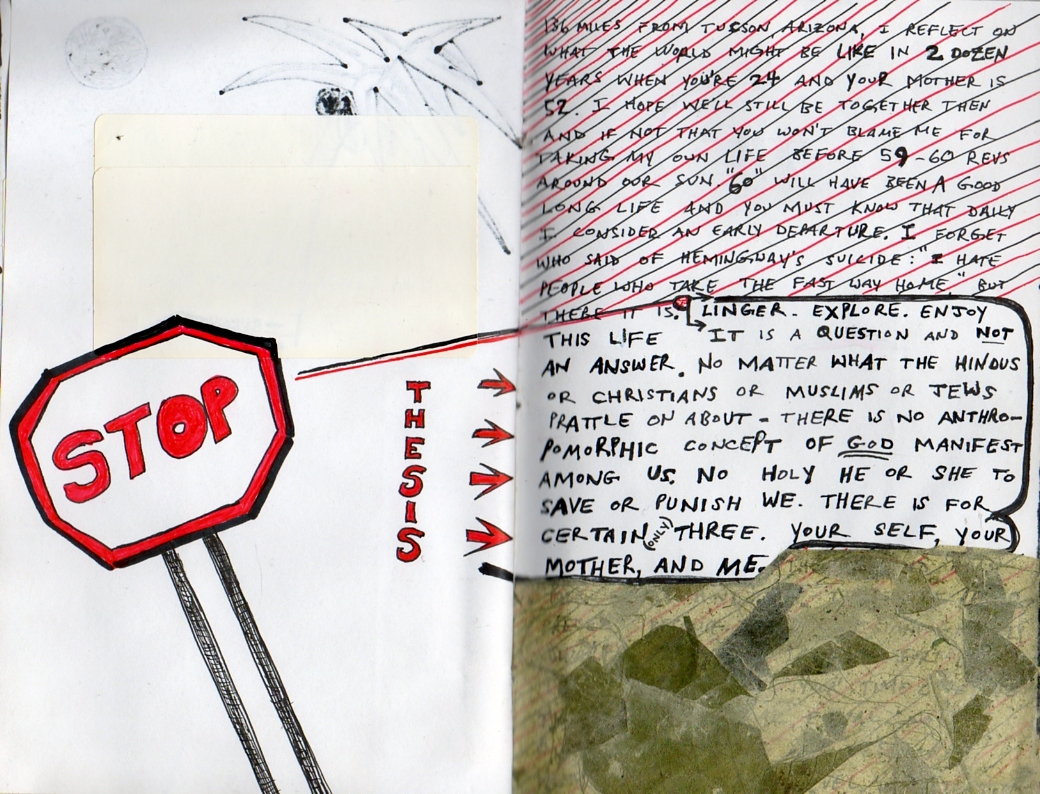 STOP
THESIS
136 MILES FROM TUCSON, ARIZONA, I REFLECT ON
WHAT THE WORLD MIGHT BE LIKE IN 2 DOZEN
YEARS WHEN YOU'RE 24 AND YOUR MOTHER IS
52. I HOPE WE'LL STILL BE TOGETHER THEN
AND IF NOT THAT YOU WON'T BLAME ME FOR
TAKING MY OWN LIFE BEFORE 59-60 REVS
AROUND OUR SUN. "60" WILL HAVE BEEN A GOOD
LONG LIFE AND YOU MUST KNOW THAT DAILY
I CONSIDER AN EARLY DEPARTURE. I FORGET
WHO SAID OF HEMINGWAY'S SUICIDE: "I HATE
PEOPLE WHO TAKE THE FAST WAY HOME" BUT
THERE IT IS. LINGER. EXPLORE. ENJOY
THIS LIFE IT IS A QUESTION AND NOT
AN ANSWER. NO MATTER WHAT THE HINDUS
OR CHRISTIANS OR MUSLIMS OR JEWS
PRATTLE ON ABOUT - THERE IS NO ANTHRO-
POMORPHIC CONCEPT OF GOD MANIFEST
AMONG US. NO HOLY HE OR SHE TO
SAVE OR PUNISH WE. THERE IS FOR
CERTAIN (ONLY) THREE. YOUR SELF, YOUR
MOTHER, AND ME.